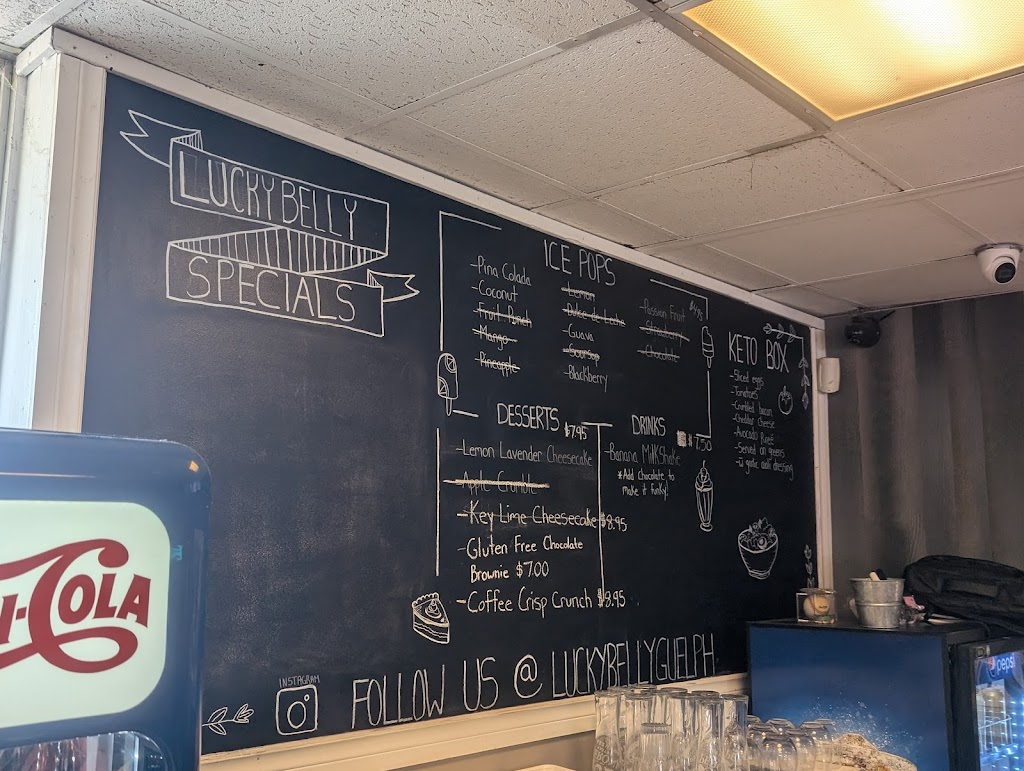 LUCKY BELLY
SPECIALS
ICE POPS
-Pina Colada
-Coconut
-Fruit Punch
-Mango
-Pineapple
-Lemon
-Dulce de Leche
-Guava
-Soursop
-Blackberry
-Passion Fruit
-Strawberry
-Chocolate
DESSERTS $7.95
-Lemon Lavender Cheesecake
-Apple Crumble
-Key Lime Cheesecake $8.95
-Gluten Free Chocolate
Brownie $7.00
-Coffee Crisp Crunch $8.95
DRINKS
$7.50
-Banana Milkshake
*Add chocolate to
make it funky!
KETO BOX
-Sliced eggs
-Tomatoes
-Crumbled bacon
-Cheddar cheese
-Avocado
-Served on greens
-w garlic aioli dressing
INSTAGRAM
FOLLOW US @ LUCKYBELLYGUELPH
I-COLA
pepsi